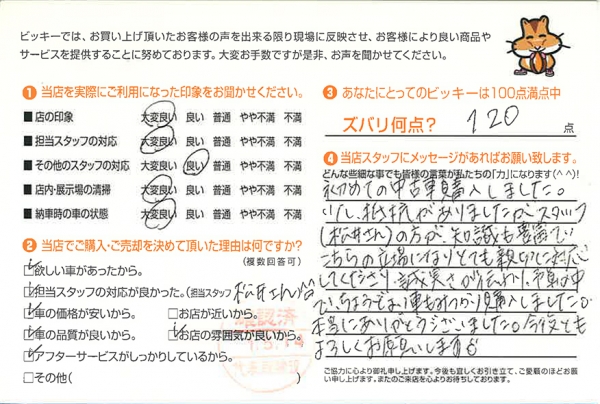 ビッキーでは、お買い上げ頂いたお客様の声を出来る限り現場に反映させ、お客様により良い商品や
サービスを提供することに努めております。大変お手数ですが是非、お声を聞かせてください。
① 当店を実際にご利用になった印象をお聞かせください。
■ 店の印象 大変良い 良い 普通 やや不満 不満
■ 担当スタッフの対応 大変良い 良い 普通 やや不満 不満
■ その他のスタッフの対応 大変良い 良い 普通 やや不満 不満
■ 店内・展示場の清掃 大変良い 良い 普通 やや不満 不満
■ 納車時の車の状態 大変良い 良い 普通 やや不満 不満
② 当店でご購入・ご売却を決めて頂いた理由は何ですか?
(複数回答可)
欲しい車があったから。
担当スタッフの対応が良かった。(担当スタッフ 松井さん
車の価格が安いから。 □お店が近いから。
車の品質が良いから。 お店の雰囲気が良いから。
アフターサービスがしっかりしているから。
□その他( )
確認済
③ あなたにとってのビッキーは100点満点中
ズバリ何点? 120 点
④ 当店スタッフにメッセージがあればお願い致します。
どんな些細な事でも皆様の言葉が私たちの「力」になります(^^)!
初めての中古車購入しました。
少し抵抗がありましたがスタッフ
(松井さん)の方が、知識も豊富で
こちらの立場になりとても親切に対応
してくださり、誠実さが伝わり、
で、ちょうどよい車もみつかり購入しました。
本当にありがとうございました。今後とも
よろしくお願いします
ご協力に心より御礼申し上げます。今後も宜しくお引き立て、ご愛顧のほどお願
い申し上げます。またのご来店を心よりお待ちしております。